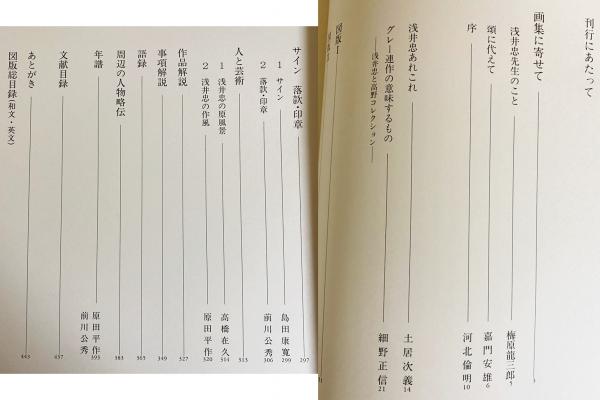 刊行にあたって
画集に寄せて 3
浅井忠先生のこと 梅原龍三郎 5
頌に代えて 嘉門安雄 6
序 河北倫明 10
浅井忠あれこれ 土居次義 14
グレー連作の意味するもの 細野正信 21
──浅井忠と高野コレクション──
図版Ⅰ
サイン 落款・印章 297
1 サイン 島田康寬 299
2 落款・印章 前川公秀 306
人と芸術 313
1 浅井忠の原風景 高橋在久 314
2 浅井忠の作風 原田平作 320
作品解説 327
事項解説 349
語録 365
周辺の人物略伝 383
年譜 原田平作 前川公秀 395
文献目録 437
あとがき 443
図版総目録(和文・英文)